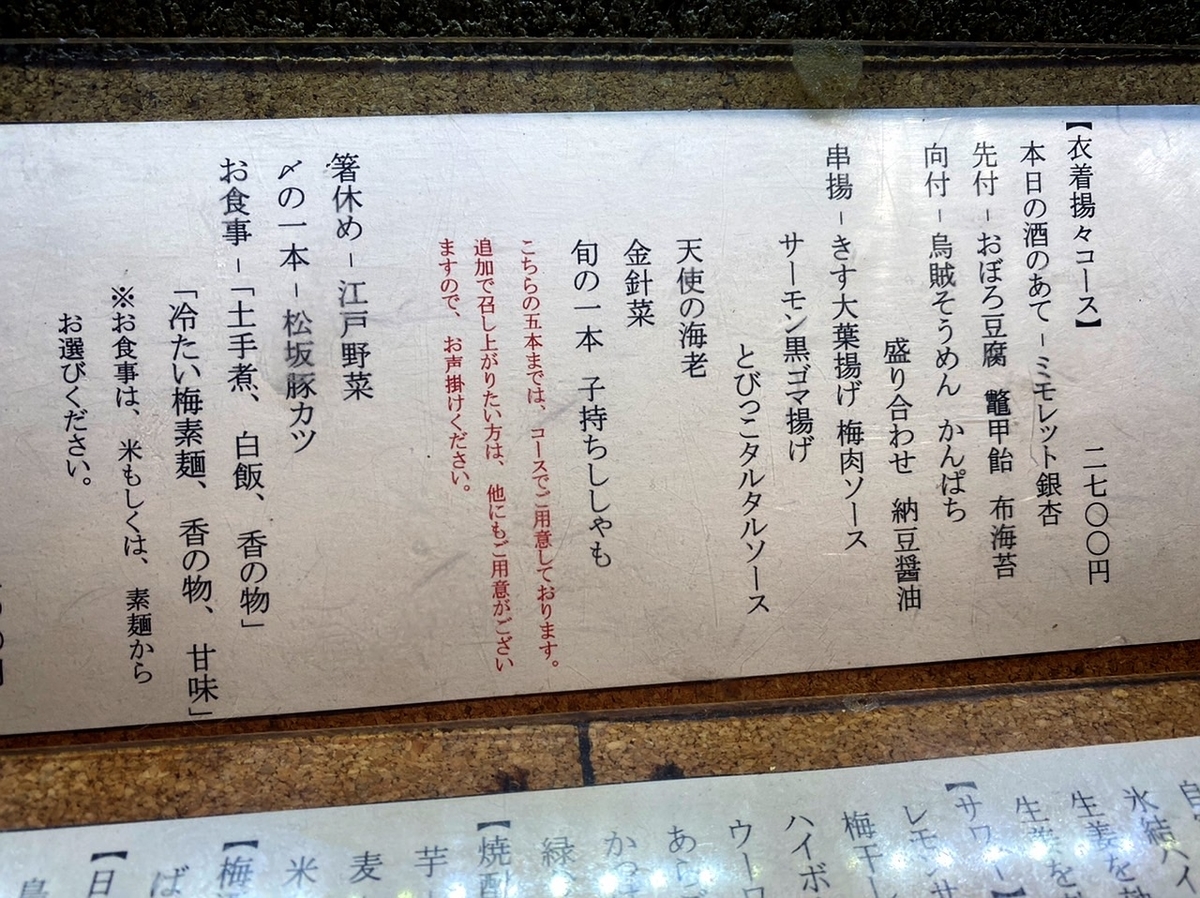 【衣着揚々コース】 二七〇〇円
本日の酒のあて－ミモレット銀杏
先付－おぼろ豆腐 鼈甲飴 布海苔
向付－烏賊そうめん かんぱち
盛り合わせ 納豆醤油
串揚－きす大葉揚げ 梅肉ソース
サーモン黒ゴマ揚げ
とびっこタルタルソース
天使の海老
金針菜
旬の一本 子持ちししゃも
こちらの五本までは、コースでご用意しております。
追加で召し上がりたい方は、他にもご用意がござい
ますので、お声掛けください。
箸休め－江戸野菜
〆の一本－松坂豚カツ
お食事－「土手煮、白飯、香の物」
「冷たい梅素麺、香の物、甘味」
※お食事は、米もしくは、素麺から
お選びください。
氷結ハイ
生姜を
生姜を
【サワー】
レモンサ
梅干し
ハイボ
ウーロ
あらご
かっ
緑
【焼酎
芋
麦
米
【梅
ば
【日